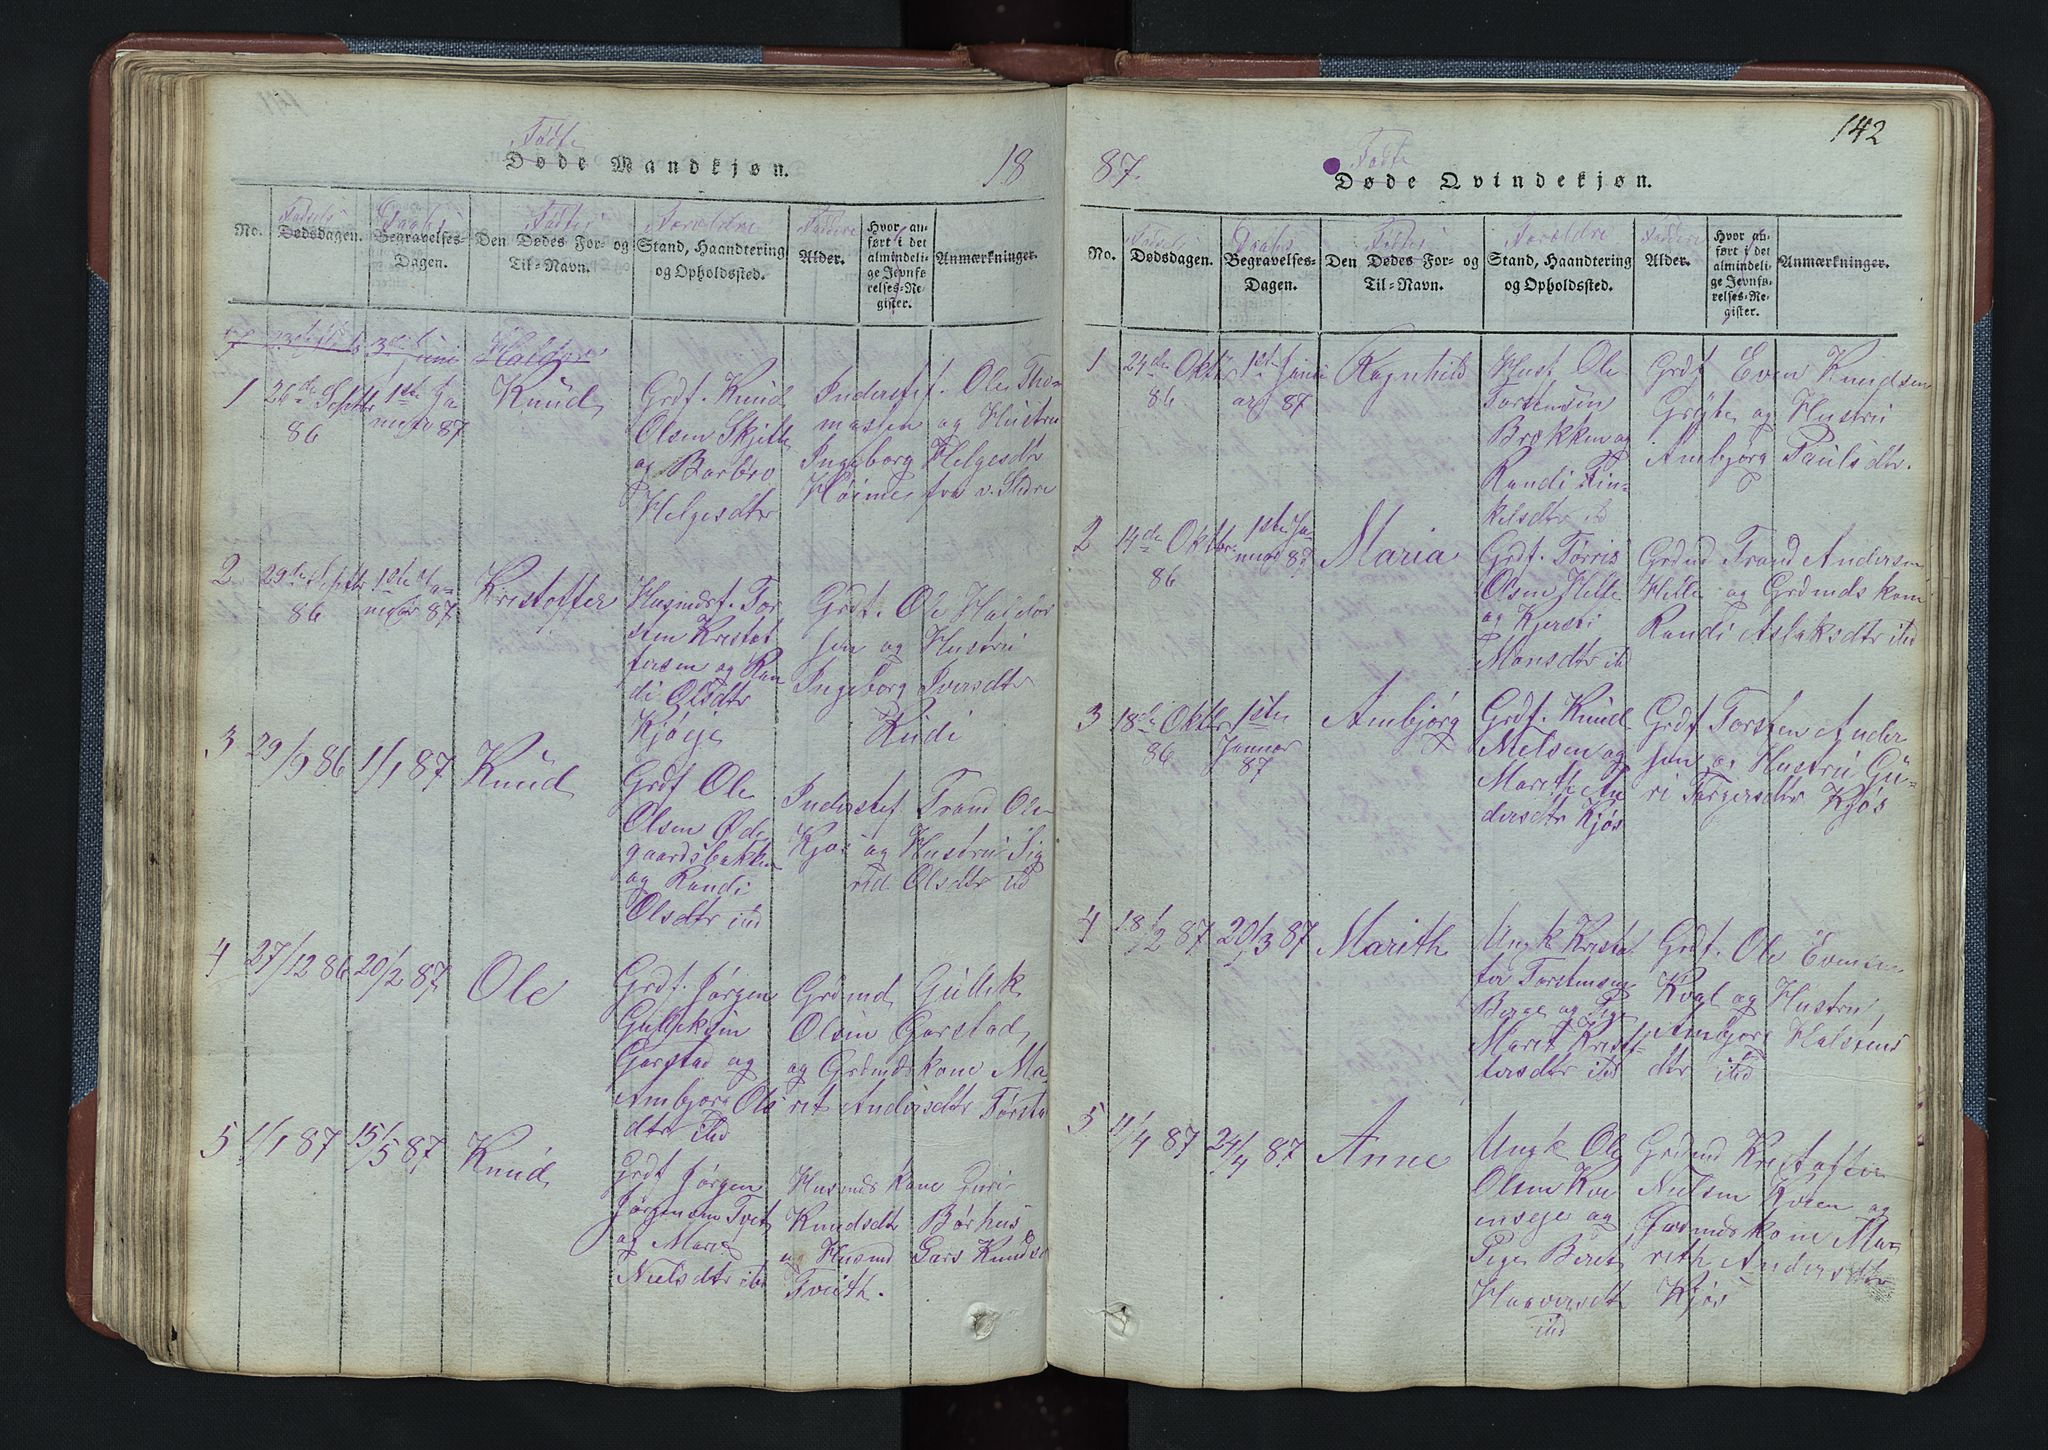 Fødte
Døde Mandkjøn.
18
No.
Fødsels
Dødsdagen.
Daabs
Begravelses-
Dagen.
Fødtes
Den Dødes For- og
Til-Navn.
Forældre
Stand, Haandtering
og Opholdssted.
Faddere
Alder.
Hvor an-
ført i det
almindeli-
ge Jevnfø
relses-Re
gister.
Anmærkninger.
1
26de Septbr
86
1ste Ja
nuar 87
Knud
Grdf. Knud
Olsen
og Barbro
Helgesdtr
Inderst f. Ole Tho
massen og Hustru
Ingeborg Helgesdtr
fra v. Slidre
2
29de Septbr
86
1ste Ja-
nuar 87
Kristoffer
Husmdsf. Tor
sten Kristof
fersen og Ran
di Olsdtr
Grdf. Ole Haldor
sen og Hustru
Ingeborg Iversdtr
Rudi
3
29/9 86
1/1 87
Knud
Grdf Ole
Olsen Øde
gaardsbakken
og Randi
Olsdtr ibd
Inderstef Trond Ole
Kjøs og Hustru Sig
rid Olsdtr ibd
4
27/12 86
20/2 87
Ole
Grdf. Jørgen
Gulleksen
Garstad og
Ambjørg Ols
dtr ibd
Grdmd Gullek
Olsen Garstad
og Grdmdskone Ma-
rit Andersdtr
5
1/1 87
15/5 87
Knud
Grdf Jørgen
Jørgensen Tveit
og Marit
Nielsdtr ibd
Husmdskone Guri
Knudsdtr Børhus
og Husmd Lars Knudse
Tveith.
142
87.
Fødte
Døde Qvindekjøn.
No.
Fødsels
Dødsdagen.
Daabs
Begravelses-
Dagen.
Fødtes
Den Dødes For- og
Til-Navn.
Forældre
Stand, Haandtering
og Opholdssted.
Faddere
Alder.
Hvor an-
ført i det
almindeli
ge Jevnfø-
relses-Re-
gister.
Anmærkninger.
1
24de Oktbr
86
1ste Janu
ar 87
Ragnhild
Hust Ole
Torstensen
Brækken og
Randi Fin-
kelsdtr ibd
Grdf Even Knudsen
og Hustru
Ambjørg Paulsdtr.
2
14de Oktbr
86
1ste Ja-
nuar 87
Maria
Grdf. Tørris
Olsen Helle
og Kjersti
Monsdtr ibd
Grdmd Trond Andersen
Helle og Grdmdskone
Randi Aslaksdtr ibd
3
18de Oktbr
86
1ste
Januar
87
Ambjørg
Grdf. Knud
Nielsen og
Marith An
dersdtr Kjøs
Grdf Torsten Ander
sen og Hustru Gu-
ri Torgersdtr Kjøs
4
18/2 87
20/3 87
Marith
Ungk Kristof
fer Torstensen
Berge og Pige
Marit Kristof
fersdtr ibd
Grdf. Ole Evensen
og Hustru
Ambjørg Halstens
dtr ibd
5
11/4 87
24/4 87
Anne
Ungk Ole
Olsen Kvi
enseje og
Pige Berit
Haaversdt
ibd
Grdmd Kristoffer
Nielsen Kvien og
Grdmdskone Ma-
rith Andersdtr
Kjøs